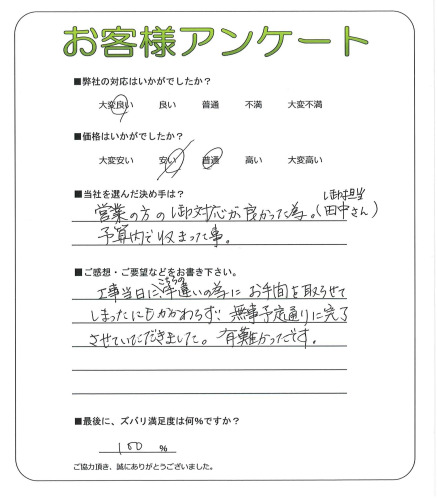 お客様アンケート
■弊社の対応はいかがでしたか？
大変良い 良い 普通 不満 大変不満
■価格はいかがでしたか？
大変安い 安い 普通 高い 大変高い
■当社を選んだ決め手は？
御担当
営業の方の御対応が良かった為。(田中さん)
予算内で収まった事。
■ご感想・ご要望などをお書き下さい。
こちらの
工事当日に、手違いの為に お手間を取らせて
しまったにもかかわらず、無事予定通りに完了
させていただきました。有難かったです。
■最後に、ズバリ満足度は何％ですか？
100 ％
ご協力頂き、誠にありがとうございました。